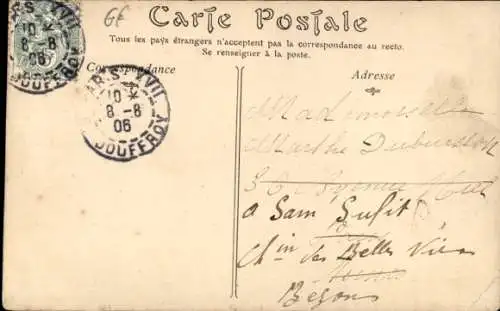 6F
Carte Postale
Tous les pays étrangers n'acceptent pas la correspondance au recto.
Se renseigner à la poste.
Correspondance
Adresse
PARIS XVII
10 *
8 - 8
06
JOUFFROY
PARIS XVII
10 *
8 - 8
06
JOUFFROY
Mademoiselle
Marthe
a Sam Sufit
Ch.in des Belles Vues
Bezons